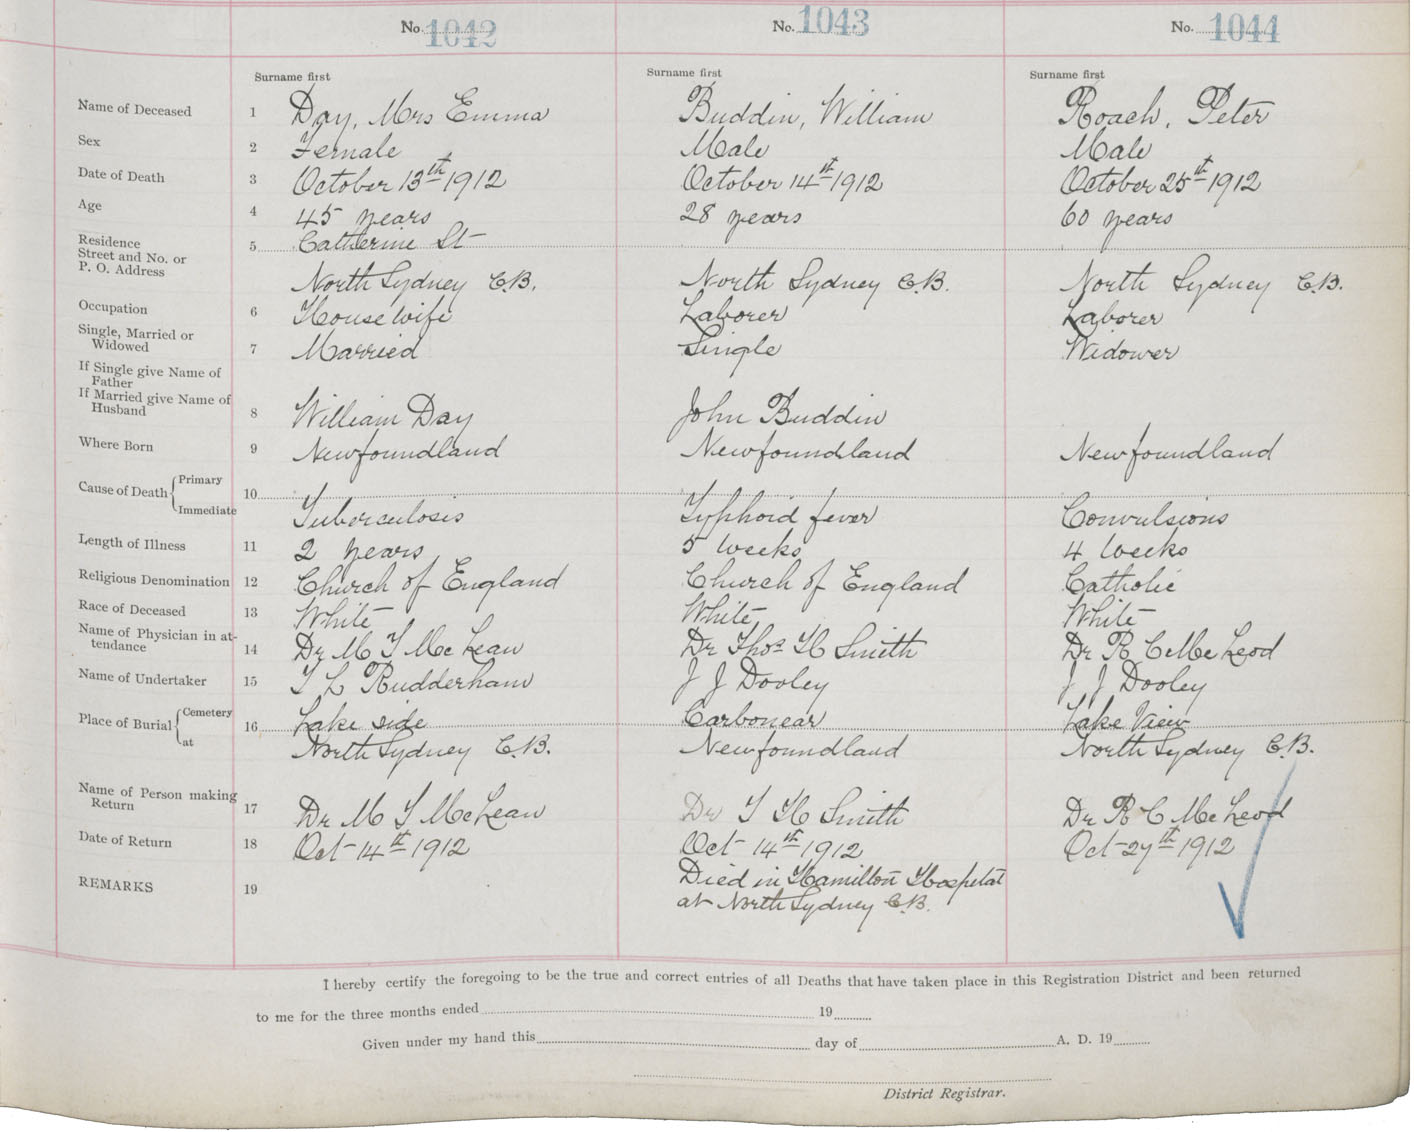 No. 1042 No. 1043 No. 1044
Surname first Surname first Surname first
Name of Deceased 1 Day, Mrs Emma Buddin, William Roach, Peter
Sex 2 Female Male Male
Date of Death 3 October 13th 1912 October 14th 1912 October 25th 1912
Age 4 45 years 28 years 60 years
Residence 5 Catherine St
Street and No. or
P. O. Address North Sydney C.B. North Sydney C.B. North Sydney C.B.
Occupation 6 House wife Laborer Laborer
Single, Married or
Widowed 7 Married Single Widower
If Single give Name of
Father
If Married give Name of
Husband 8 William Day John Buddin
Where Born 9 Newfoundland Newfoundland Newfoundland
Cause of Death Primary 10
Immediate Tuberculosis Typhoid fever Convulsions
Length of Illness 11 2 years 5 weeks 4 weeks
Religious Denomination 12 Church of England Church of England Catholic
Race of Deceased 13 White White White
Name of Physician in at-
tendance 14 Dr M T McLean Dr Thos H Smith Dr R C McLeod
Name of Undertaker 15 T L Rudderham J J Dooley J J Dooley
Place of Burial Cemetery 16 Lake side Carbonear Lake View
at North Sydney C.B. Newfoundland North Sydney C.B.
Name of Person making
Return 17 Dr M T McLean Dr T H Smith Dr R C McLeod
Date of Return 18 Oct 14th 1912 Oct 14th 1912 Oct 27th 1912
REMARKS 19 Died in Hamilton Hospital
at North Sydney C.B.
I hereby certify the foregoing to be the true and correct entries of all Deaths that have taken place in this Registration District and been returned
to me for the three months ended 19
Given under my hand this day of A. D. 19
District Registrar.